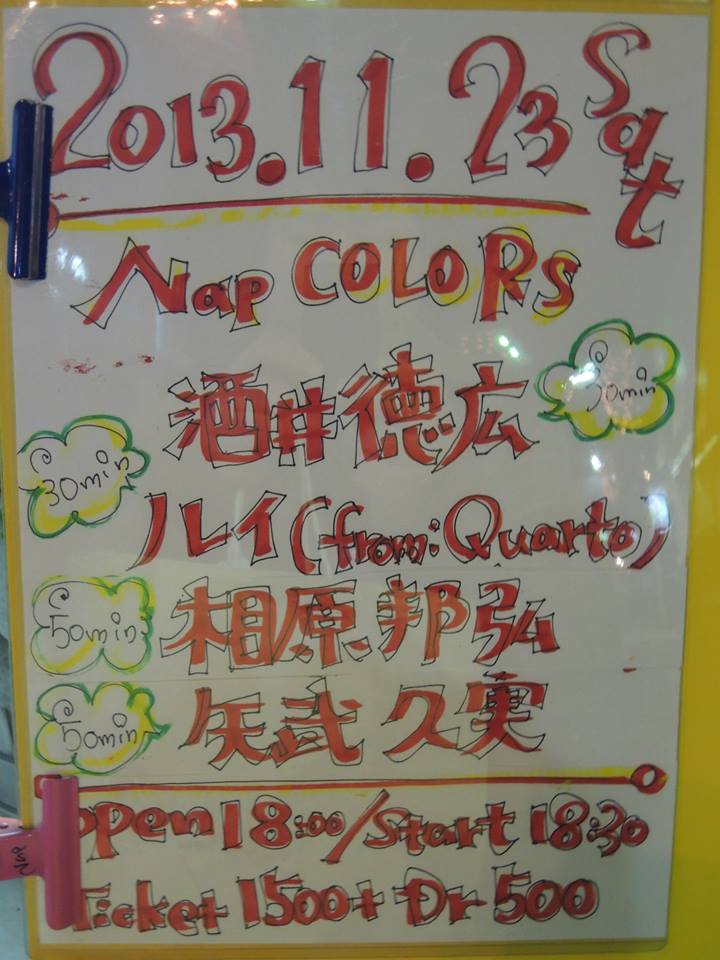 2013.11.23 Sat
Nap COLORS
酒井徳広
30min
30min
ルイ (from: Quarto)
相原邦弘
50min
矢武久実
50min
open 18:00/Start 18:30
Ticket 1500+ Dr 500